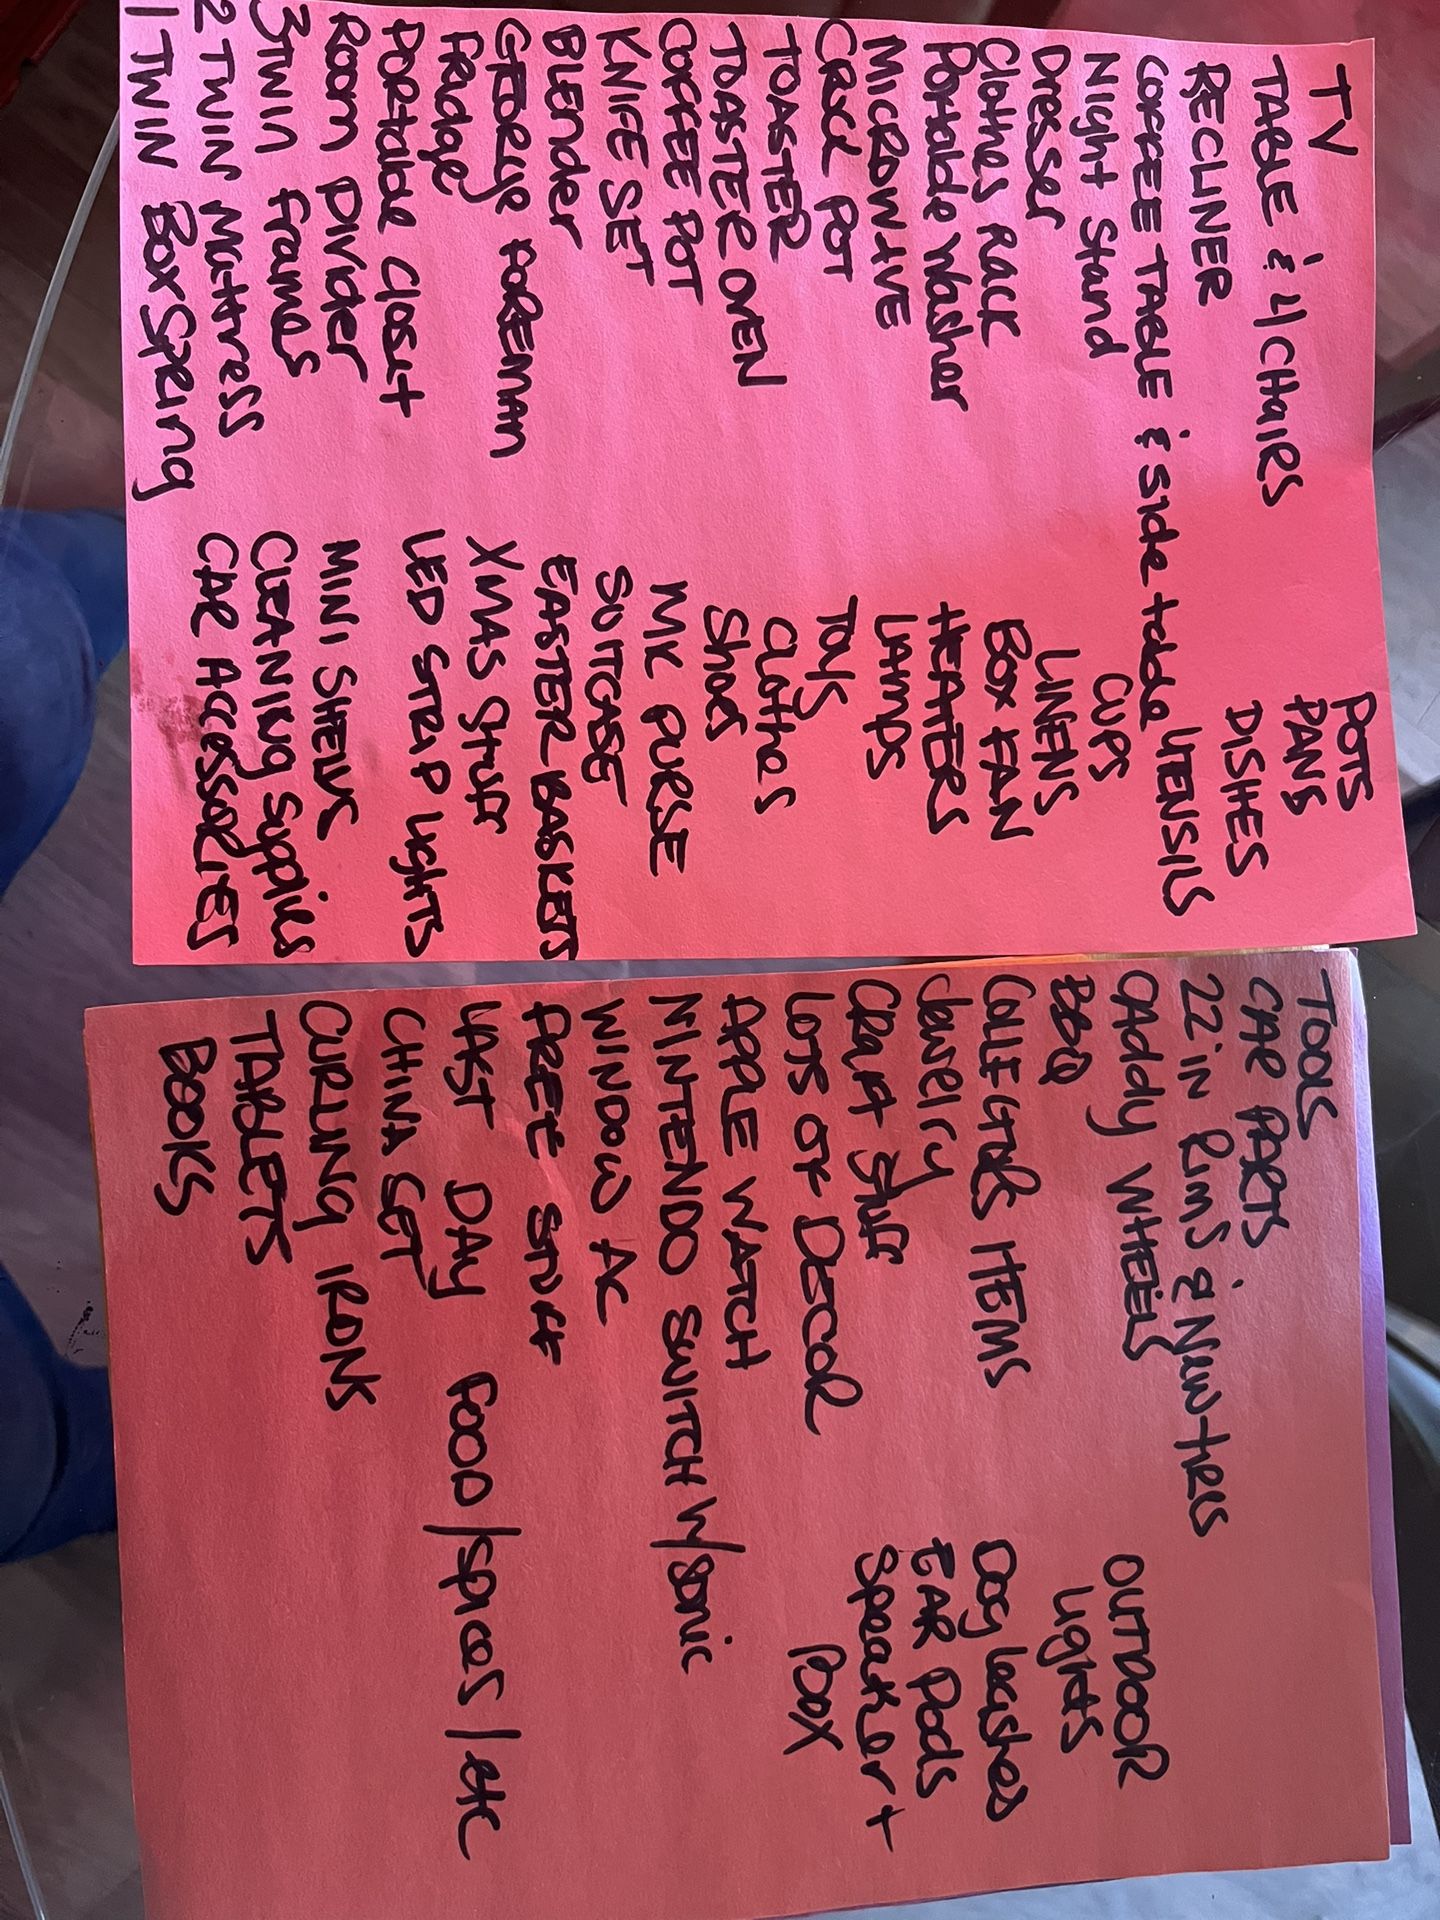 TV
TABLE & 4 CHAIRS
RECLINER
COFFEE TABLE & side table
Night Stand
Dresser
Clothes Rack
Portable Washer
MICROWAVE
CROCK POT
TOASTER
TOASTER OVEN
COFFEE POT
KNIFE SET
BLENDER
GEORGE FOREMAN
Fridge
PORTABLE CLOSET
ROOM DIVIDER
3 TWIN Frames
2 TWIN Mattress
1 TWIN BOX SPRING
POTS
PANS
DISHES
UTENSILS
CUPS
LINENS
BOX FAN
HEATERS
LAMPS
TOYS
Clothes
Shoes
MK PURSE
SUITCASE
EASTER BASKETS
XMAS Stuff
LED STRIP LIGHTS
MINI SHELVS
CLEANING Supplies
CAR ACCESSORIES
TOOLS
CAR PARTS
22 in Rims & New tires
CADDY WHEELS
BBQ
COLLECTORS ITEMS
Jewelry
Craft Stuff
LOTS OF DECOR
APPLE WATCH
NINTENDO SWITCH W/ Sonic
WINDOW AC
FREE STUFF
LAST DAY FOOD/spices/etc
CHINA SET
CURLING IRONS
TABLETS
BOOKS
OUTDOOR
Lights
Dog leashes
EAR PODS
Speaker +
BOX